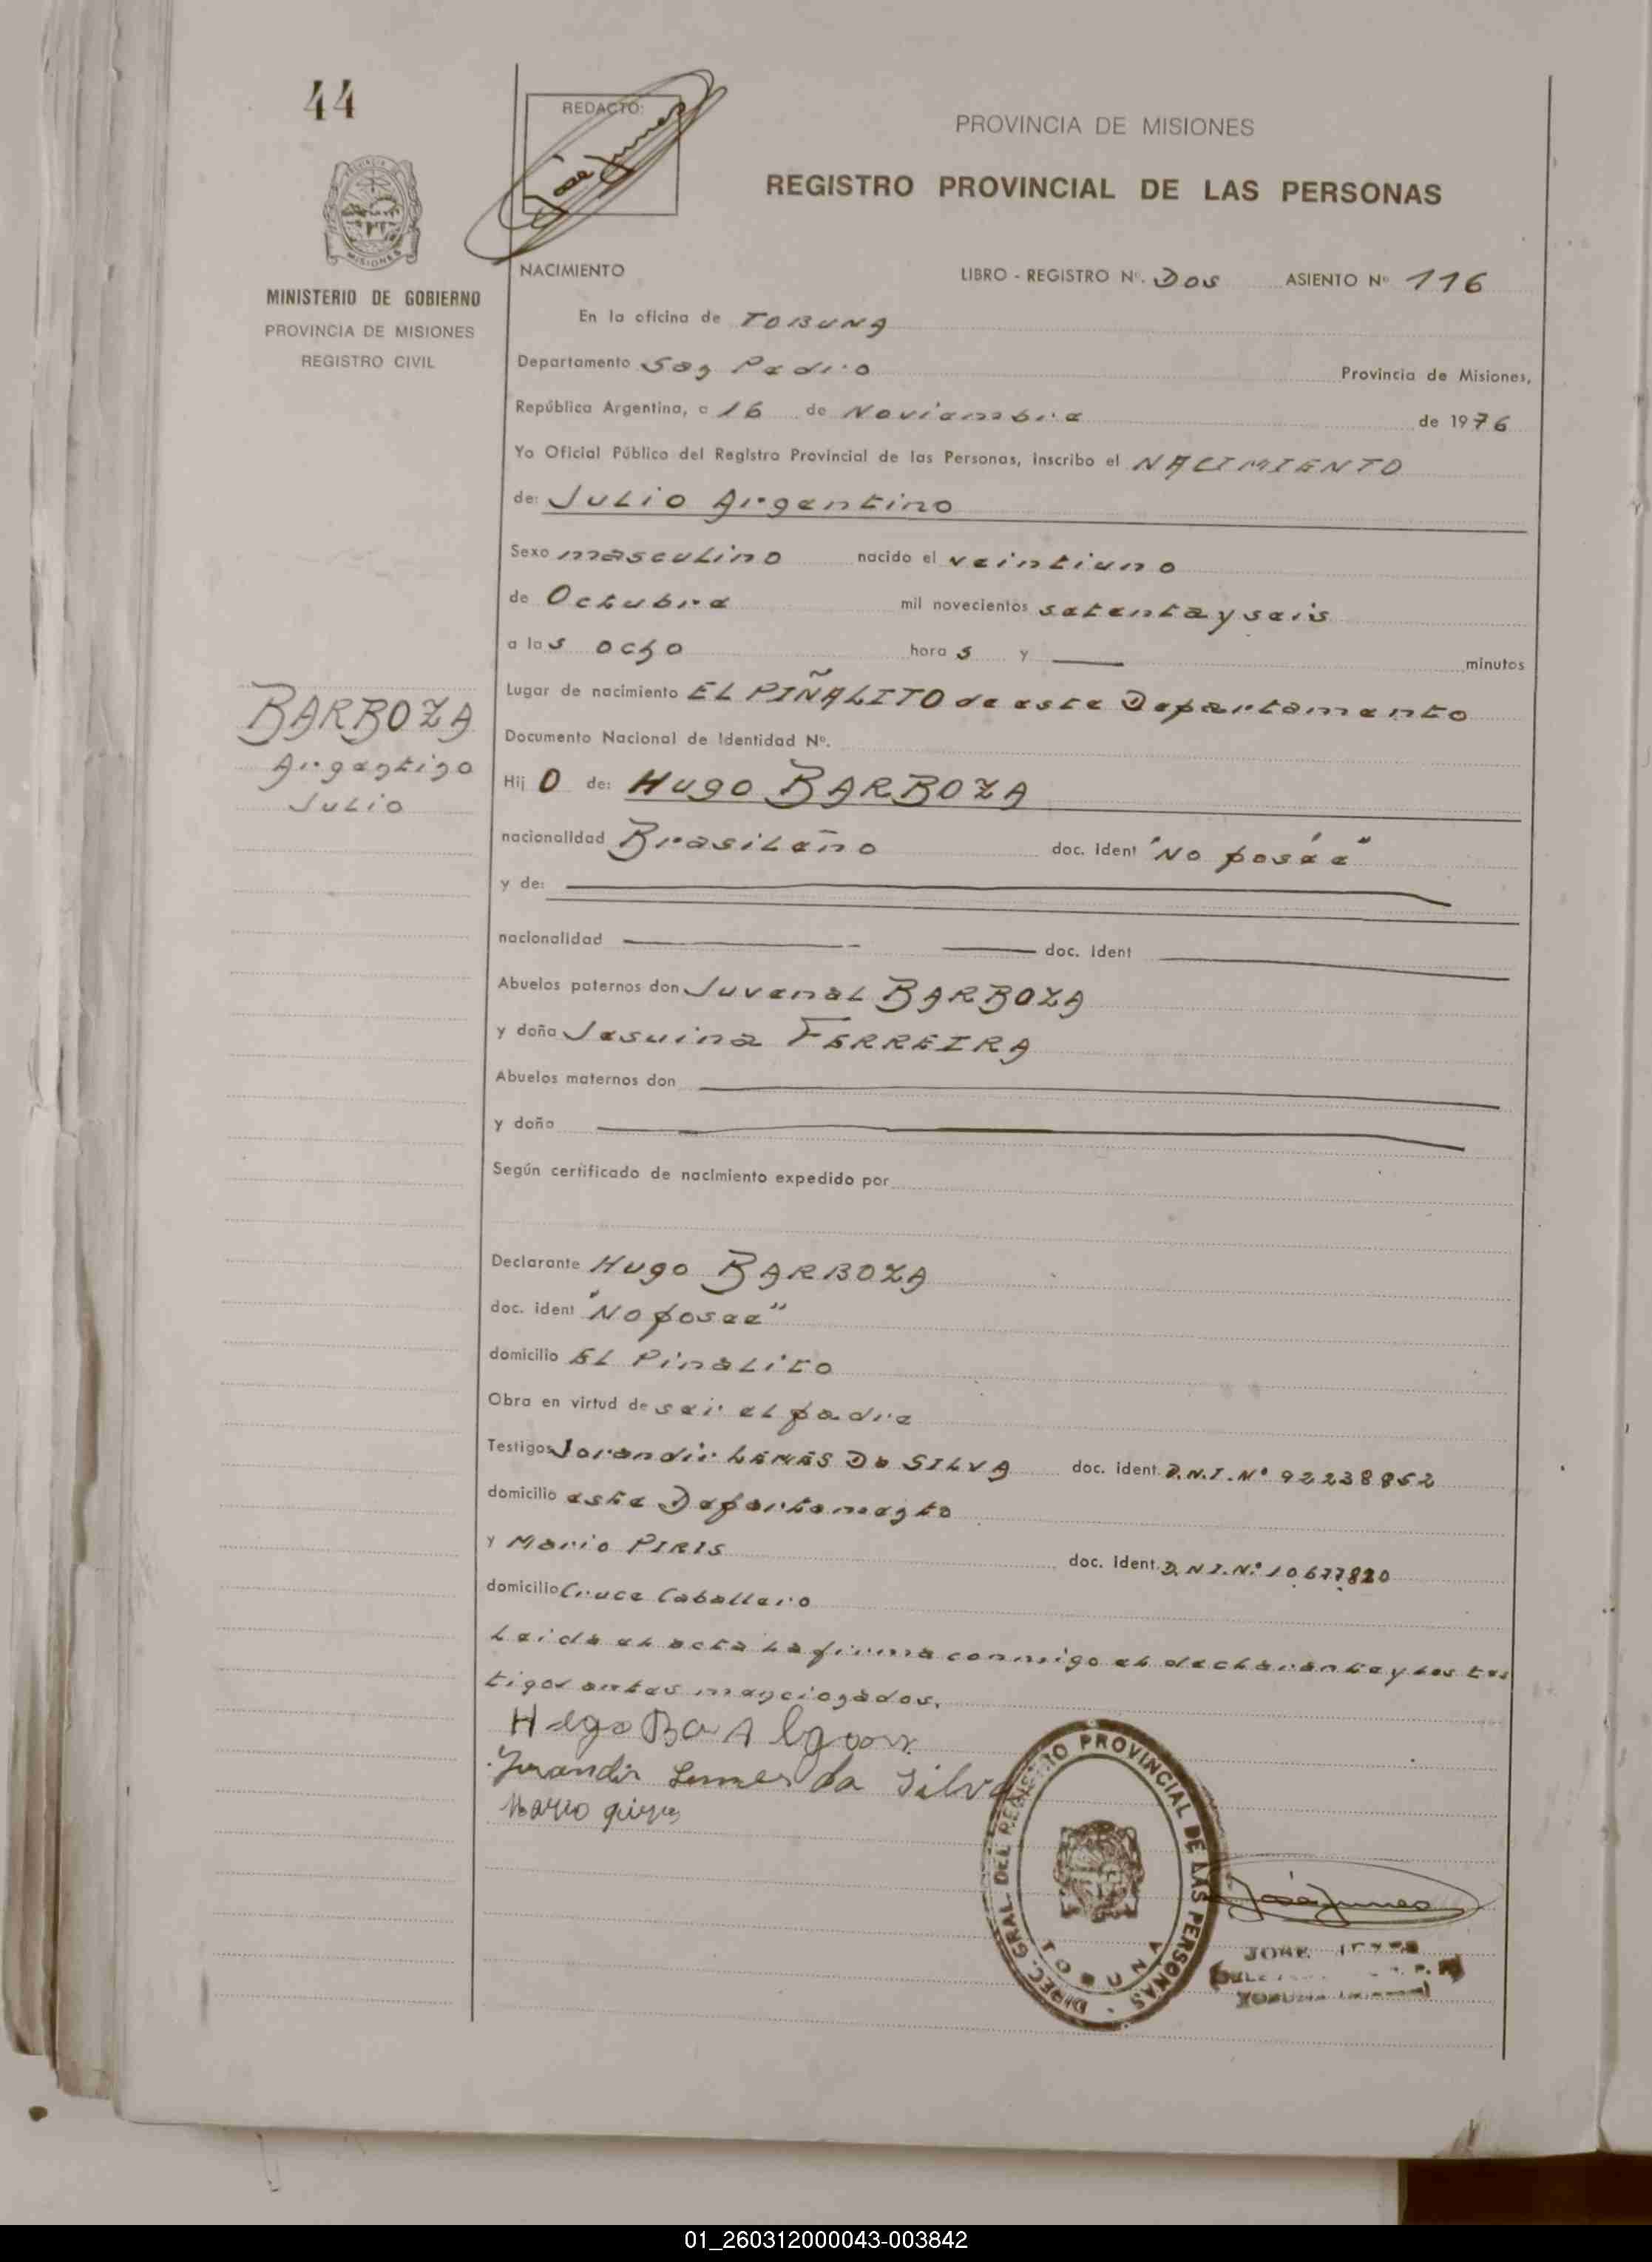 44
REDACTO:
PROVINCIA DE MISIONES
REGISTRO PROVINCIAL DE LAS PERSONAS
MISIONES
MINISTERIO DE GOBIERNO
PROVINCIA DE MISIONES
REGISTRO CIVIL
NACIMIENTO LIBRO - REGISTRO Nº. Dos ASIENTO Nº 116
En la oficina de TOBUNA
Departamento San Pedro Provincia de Misiones,
República Argentina, a 16 de Noviembre de 1976
Yo Oficial Público del Registro Provincial de las Personas, inscribo el NACIMIENTO
de: Julio Argentino
Sexo masculino nacido el veintiuno
de Octubre mil novecientos setenta y seis
a las ocho horas y — minutos
Lugar de nacimiento EL PIÑALITO de este Departamento
BARBOZA
Argentino
Julio
Documento Nacional de Identidad Nº.
Hijo de: Hugo BARBOZA
nacionalidad Brasileño doc. ident "No posée"
y de:
nacionalidad doc. ident
Abuelos paternos don Juvenal BARBOZA
y doña Jesuina FERREIRA
Abuelos maternos don
y doña
Según certificado de nacimiento expedido por
Declarante Hugo BARBOZA
doc. ident "No posee"
domicilio El Pinalito
Obra en virtud de ser el padre
Testigos Jorandir LEMES Da SILVA doc. ident. D.N.I. Nº 92238852
domicilio este Departamento
y Mario PIRIS doc. ident. D.N.I. Nº 10.677.820
domicilio Cruce Caballero
Leida el acta la firma conmigo el declarante y los tes
tigos antes mencionados.
Jurandir Lemes da Silva
Mario
DIREC. GRAL DEL REGISTRO PROVINCIAL DE LAS PERSONAS
TOBUNA
JOSE